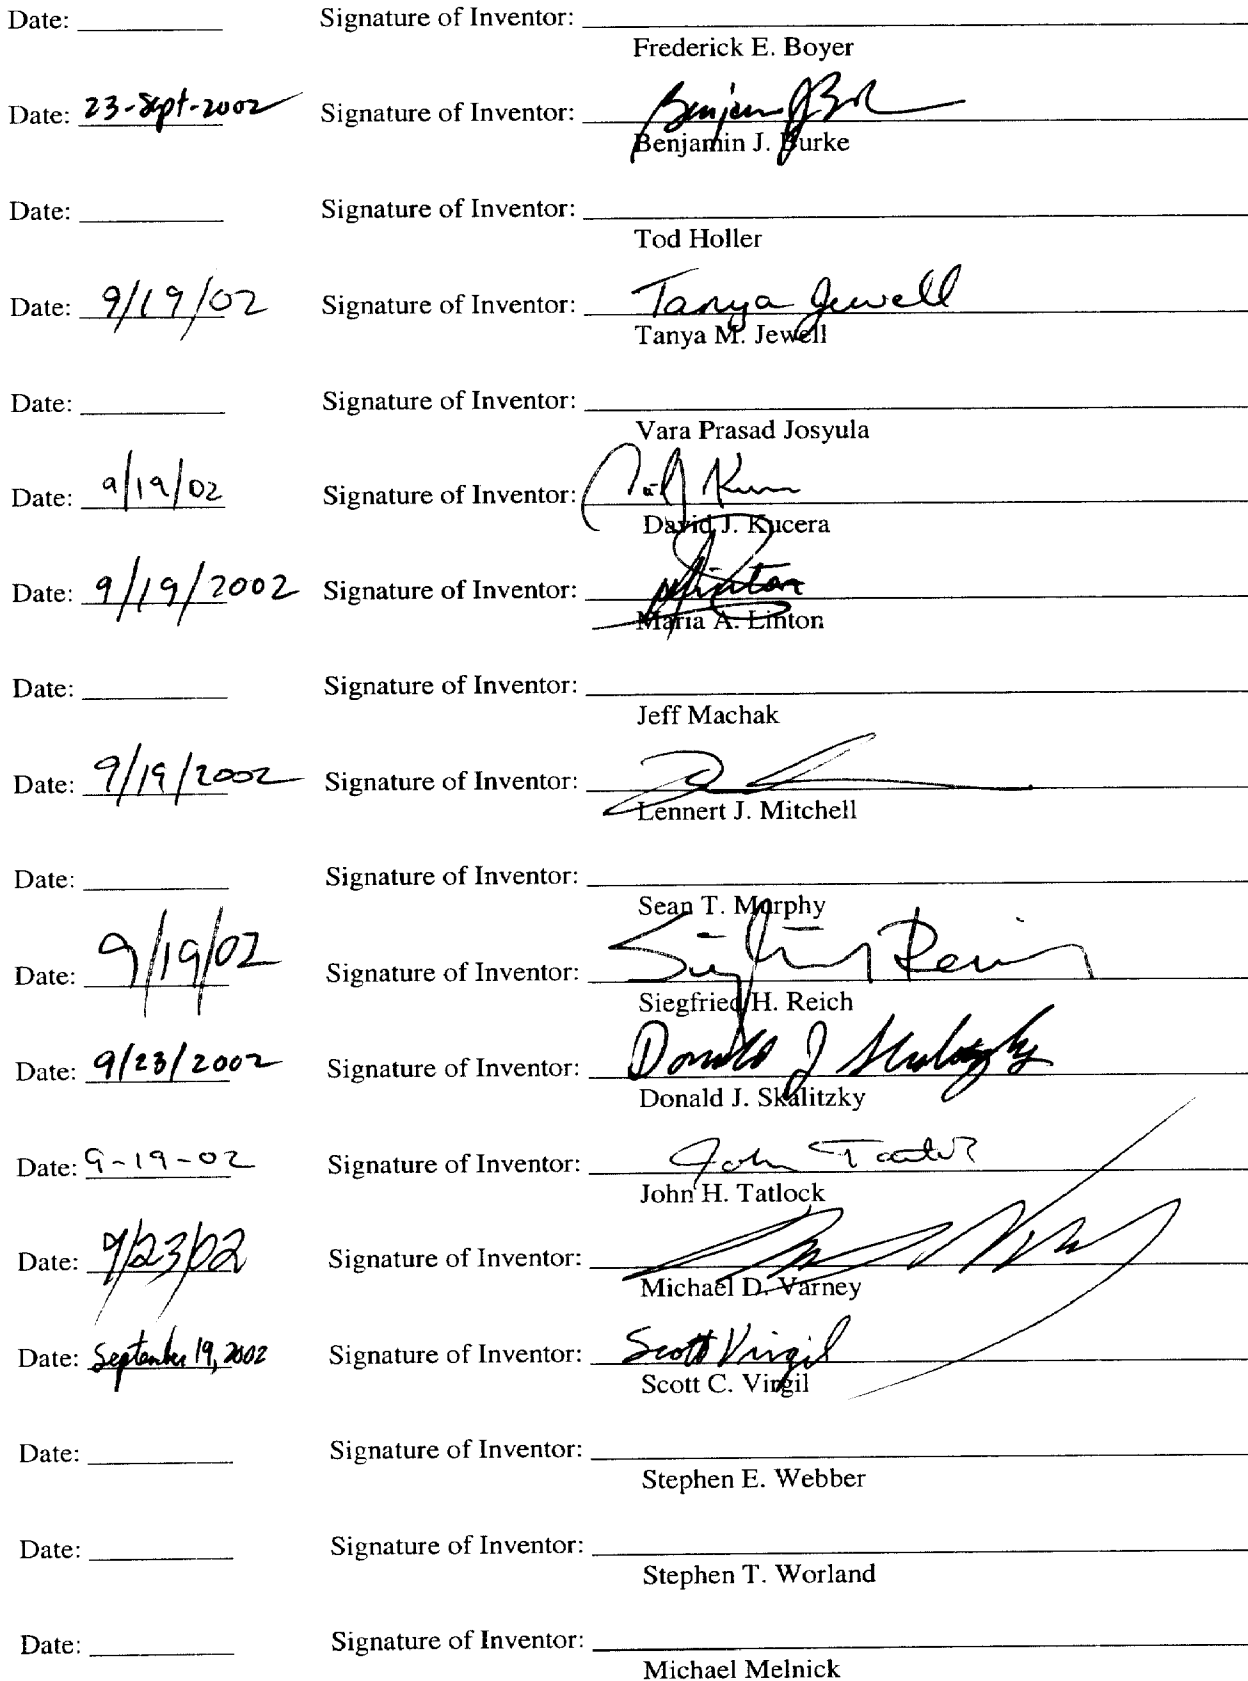 Date: ________ Signature of Inventor: ________
Frederick E. Boyer
Date: 23-Sept-2002 Signature of Inventor: Benjamin J B
Benjamin J. Burke
Date: ________ Signature of Inventor: ________
Tod Holler
Date: 9/19/02 Signature of Inventor: Tanya Jewell
Tanya M. Jewell
Date: ________ Signature of Inventor: ________
Vara Prasad Josyula
Date: 9/19/02 Signature of Inventor:
David J. Kucera
Date: 9/19/2002 Signature of Inventor: Linton
Maria A. Linton
Date: ________ Signature of Inventor: ________
Jeff Machak
Date: 9/19/2002 Signature of Inventor:
Lennert J. Mitchell
Date: ________ Signature of Inventor: ________
Sean T. Murphy
Date: 9/19/02 Signature of Inventor:
Siegfried H. Reich
Date: 9/23/2002 Signature of Inventor: Donald J Skalitzky
Donald J. Skalitzky
Date: 9-19-02 Signature of Inventor: John Tatlock
John H. Tatlock
Date: 9/23/02 Signature of Inventor:
Michael D. Varney
Date: September 19, 2002 Signature of Inventor: Scott Virgil
Scott C. Virgil
Date: ________ Signature of Inventor: ________
Stephen E. Webber
Date: ________ Signature of Inventor: ________
Stephen T. Worland
Date: ________ Signature of Inventor: ________
Michael Melnick